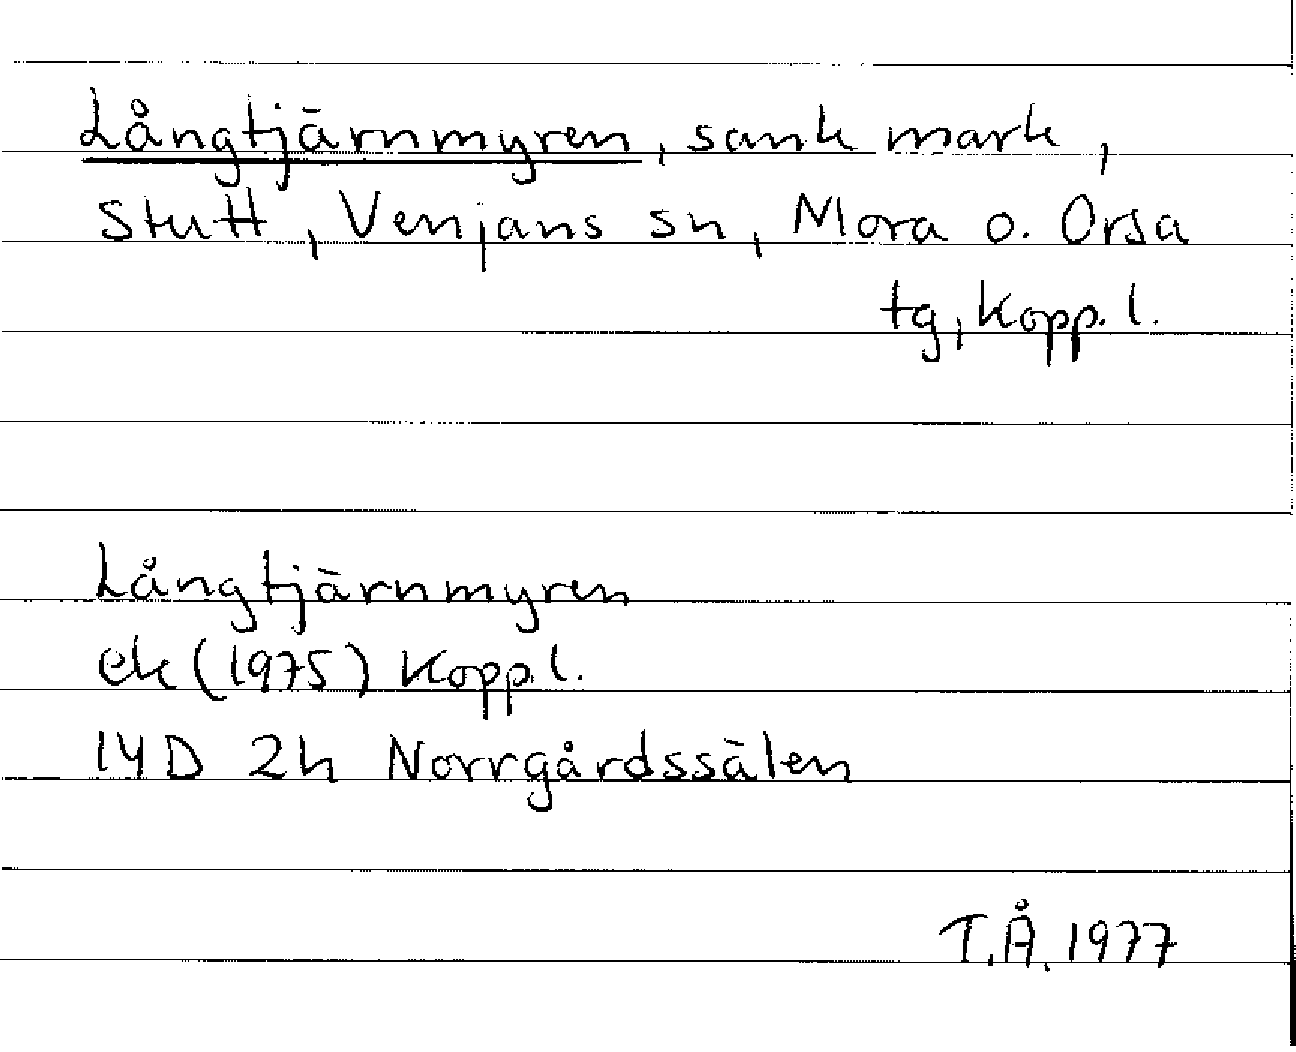 Långtjärnmyren, sank mark,
Stutt, Venjans sn, Mora o. Orsa
tg, Kopp. l.
Långtjärnmyren
ek (1975) Kopp. l.
14D 2h Norrgårdssälen
T.Å. 1977